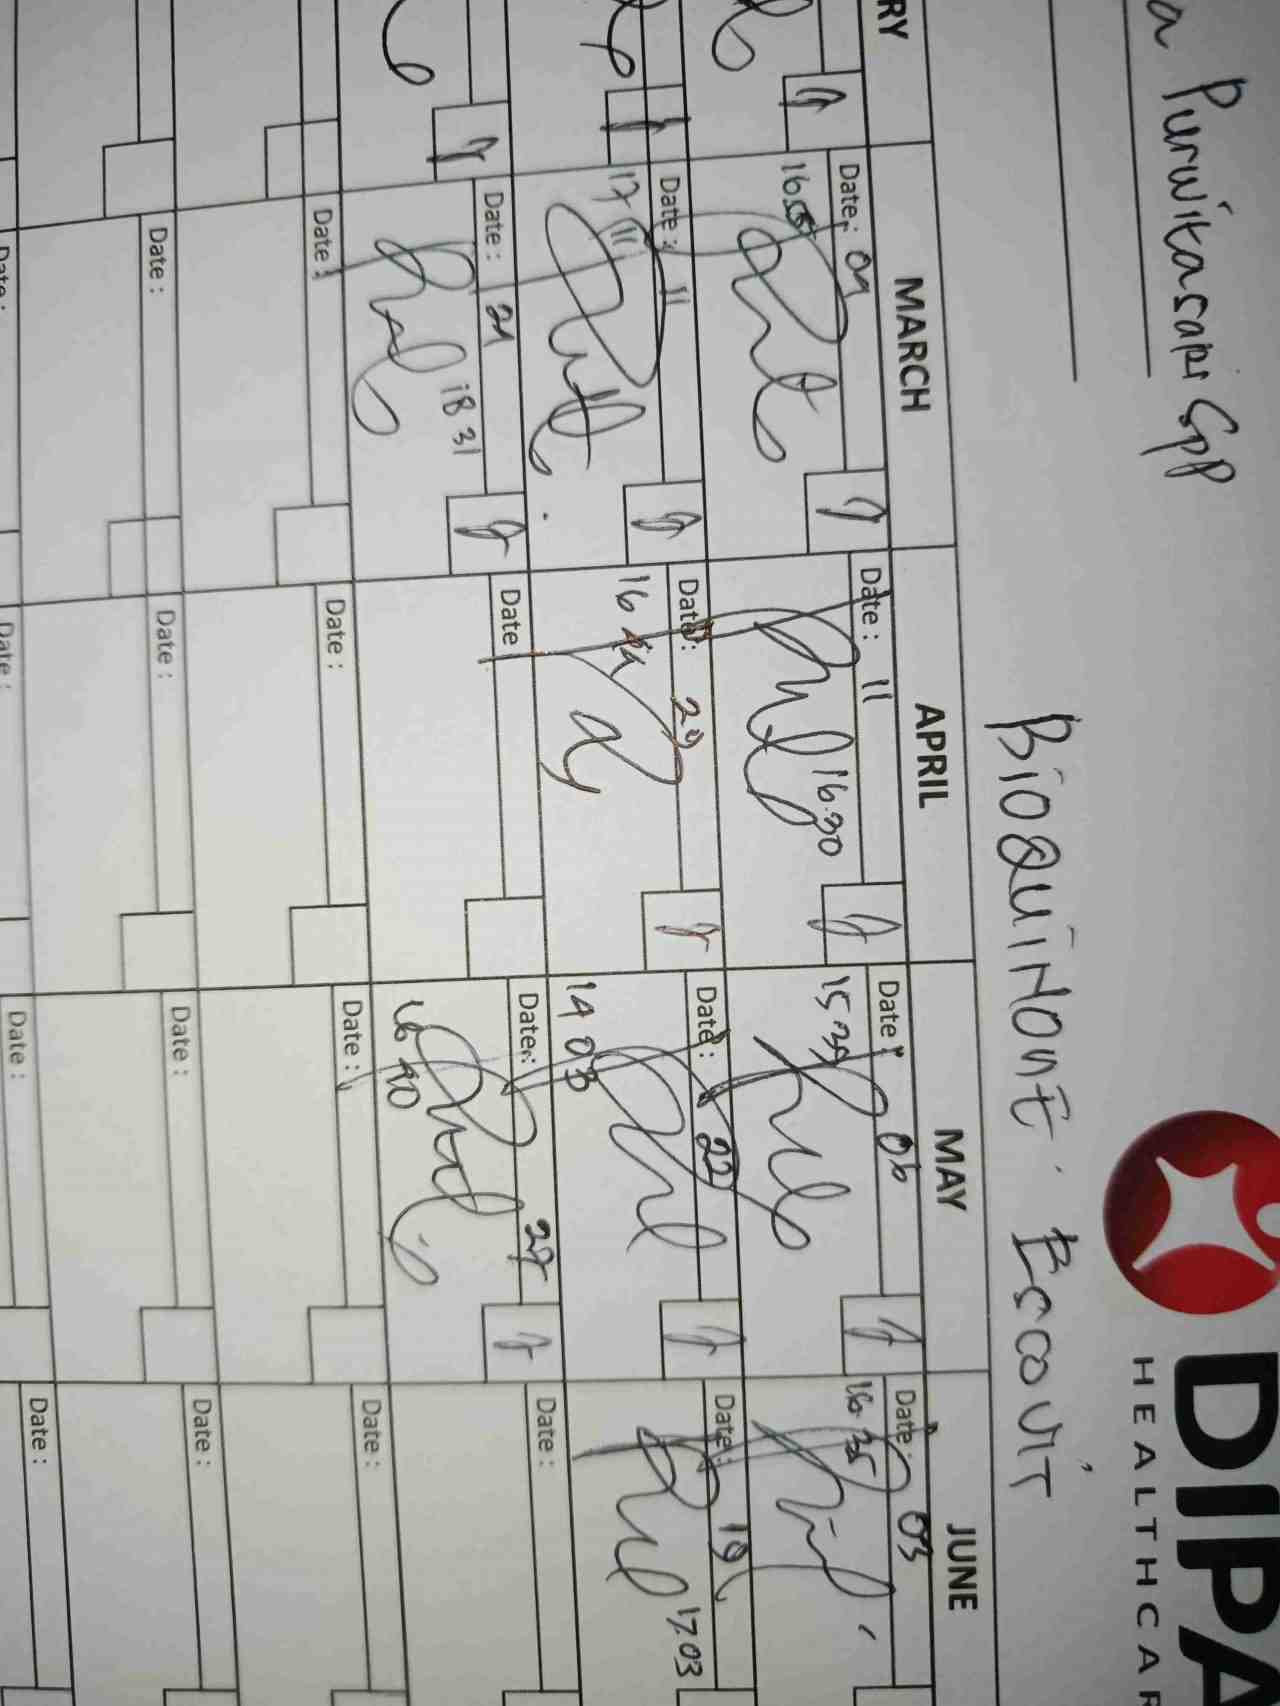 a Purwitasari SpP
DIPA
HEALTHCAR
BioQuiNone. Escovit
RY MARCH APRIL MAY JUNE
Date: 04 Date: 11 Date: 06 Date: 03
16.30 15 16.35
Date: 11 Date: 29 Date: 22 Date: 19
17 11 16 14 03 17.03
Date: 21 Date Date: 28 Date:
18 31 16 40
Date: Date: Date: Date:
Date: Date: Date: Date:
Date: Date: Date: Date: